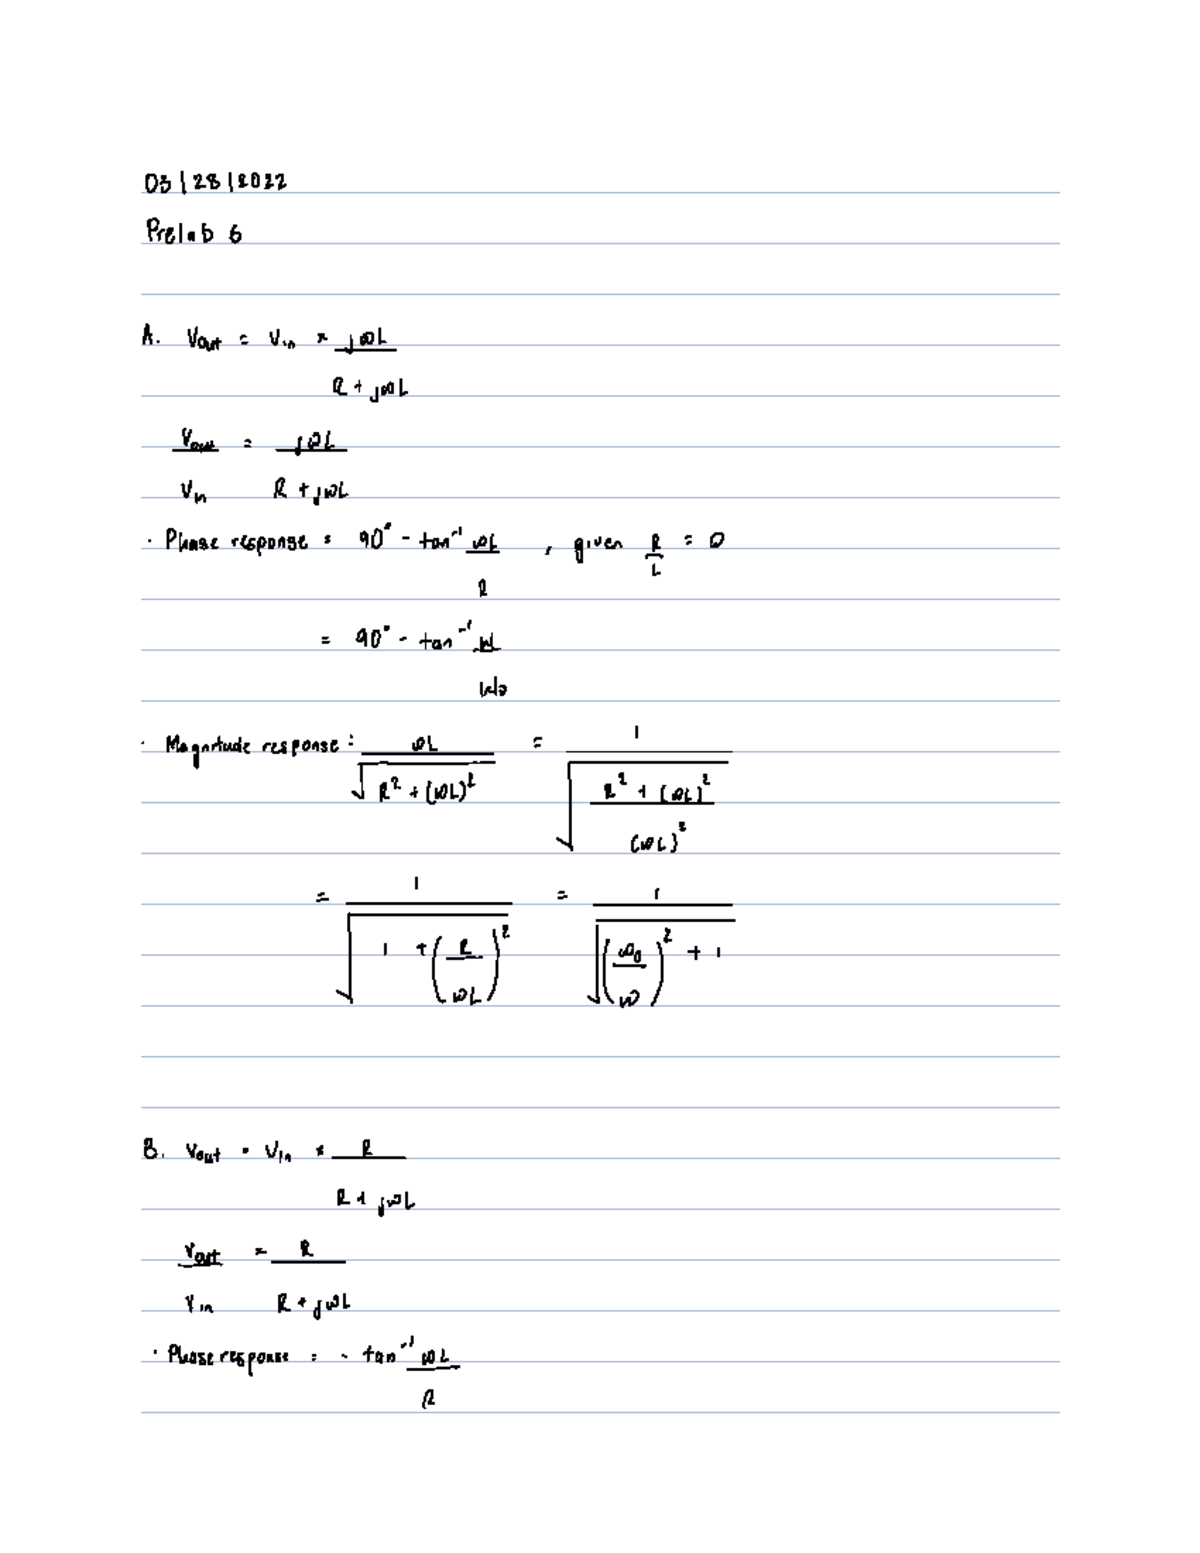 03 | 28 | 2022
Prelab 6
A. Vout = Vin × jωL
R + jωL
Vout = jωL
Vin R + jωL
· Phase response = 90° - tan⁻¹ ωL , given R = 0
R L
= 90° - tan⁻¹ ω
ω/o
· Magnitude response : ωL = 1
√ R² + (ωL)² √ R² + (ωL)²
(ωL)²
= 1 = 1
√ 1 + ( R )² √ ( ω₀ )² + 1
ωL ω
B. Vout = Vin × R
R + jωL
Vout = R
Vin R + jωL
· Phase response = - tan⁻¹ ωL
R